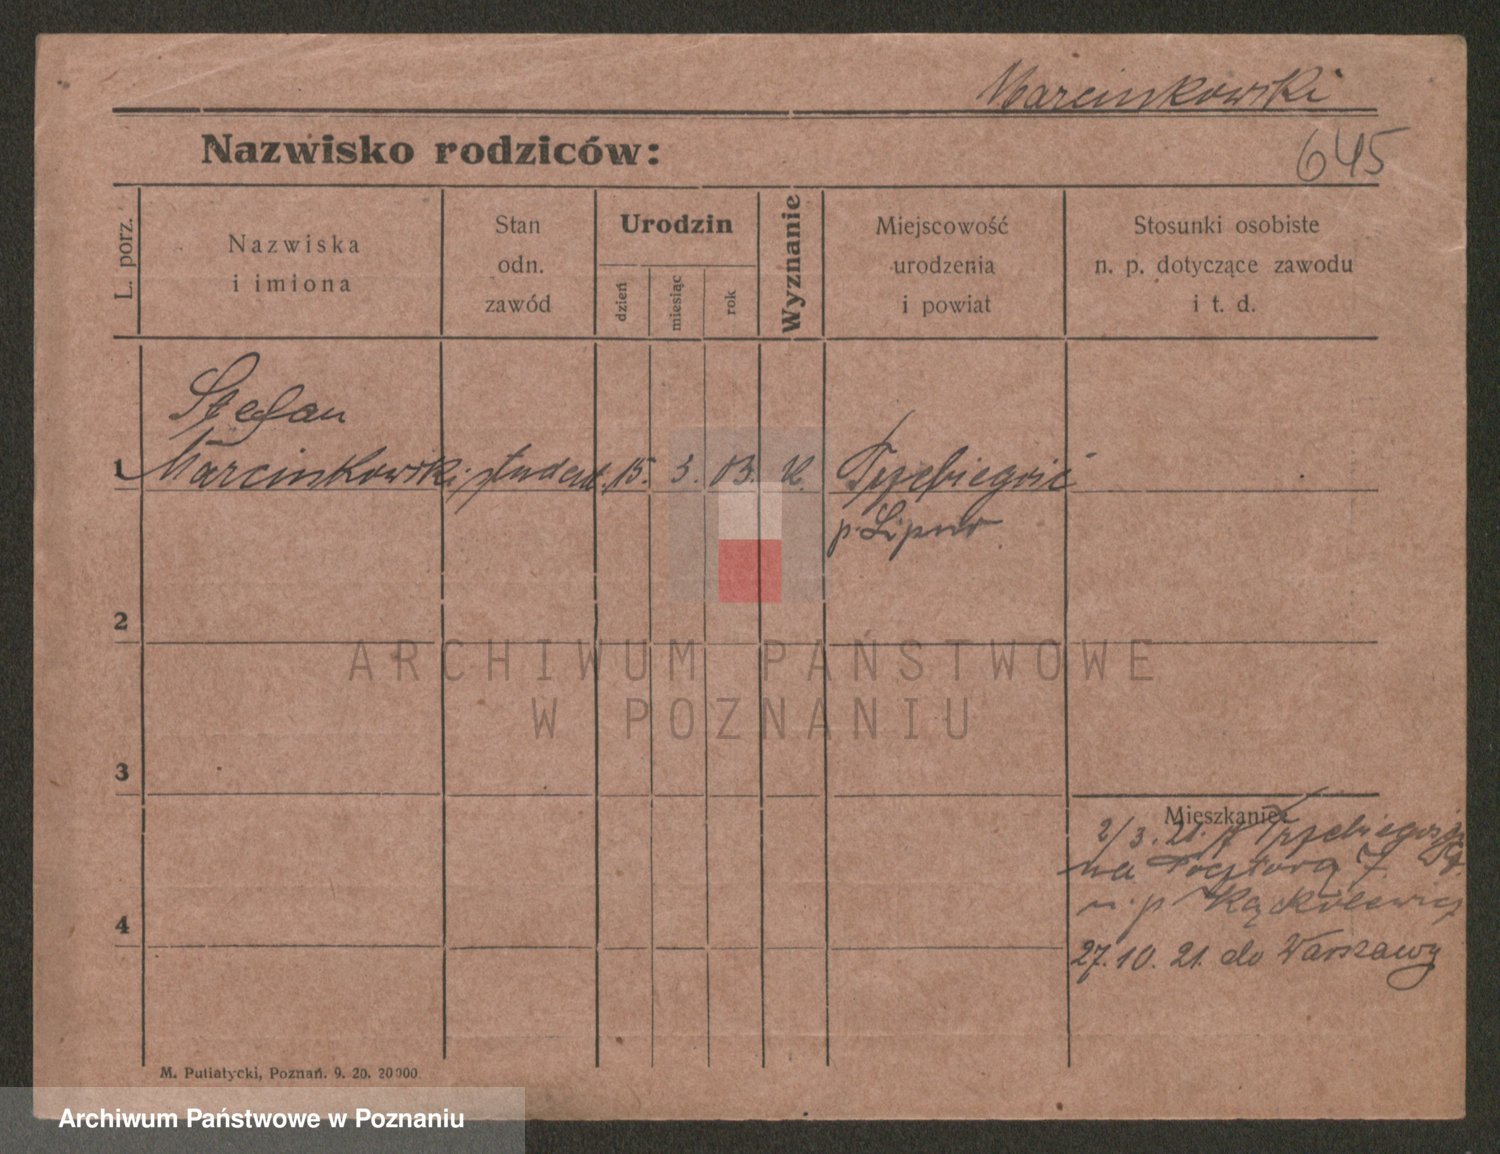 Marcinkowski
645
Nazwisko rodziców:
L. porz.
Nazwiska
i imiona
Stan
odn.
zawód
Urodzin
dzień
miesiąc
rok
Wyznanie
Miejscowość
urodzenia
i powiat
Stosunki osobiste
n. p. dotyczące zawodu
i t. d.
Stefan
1 Marcinkowski student. 15. 3. 03. K. Trzebiegość
p. Lipno
2
3
4
Mieszkanie:
2/3. 21. z Trzebiegość
na Pocztową 7.
u. p.
27. 10. 21. do Warszawy
M. Putiatycki, Poznań. 9. 20. 20000
ARCHIWUM PAŃSTWOWE
W POZNANIU
Archiwum Państwowe w Poznaniu